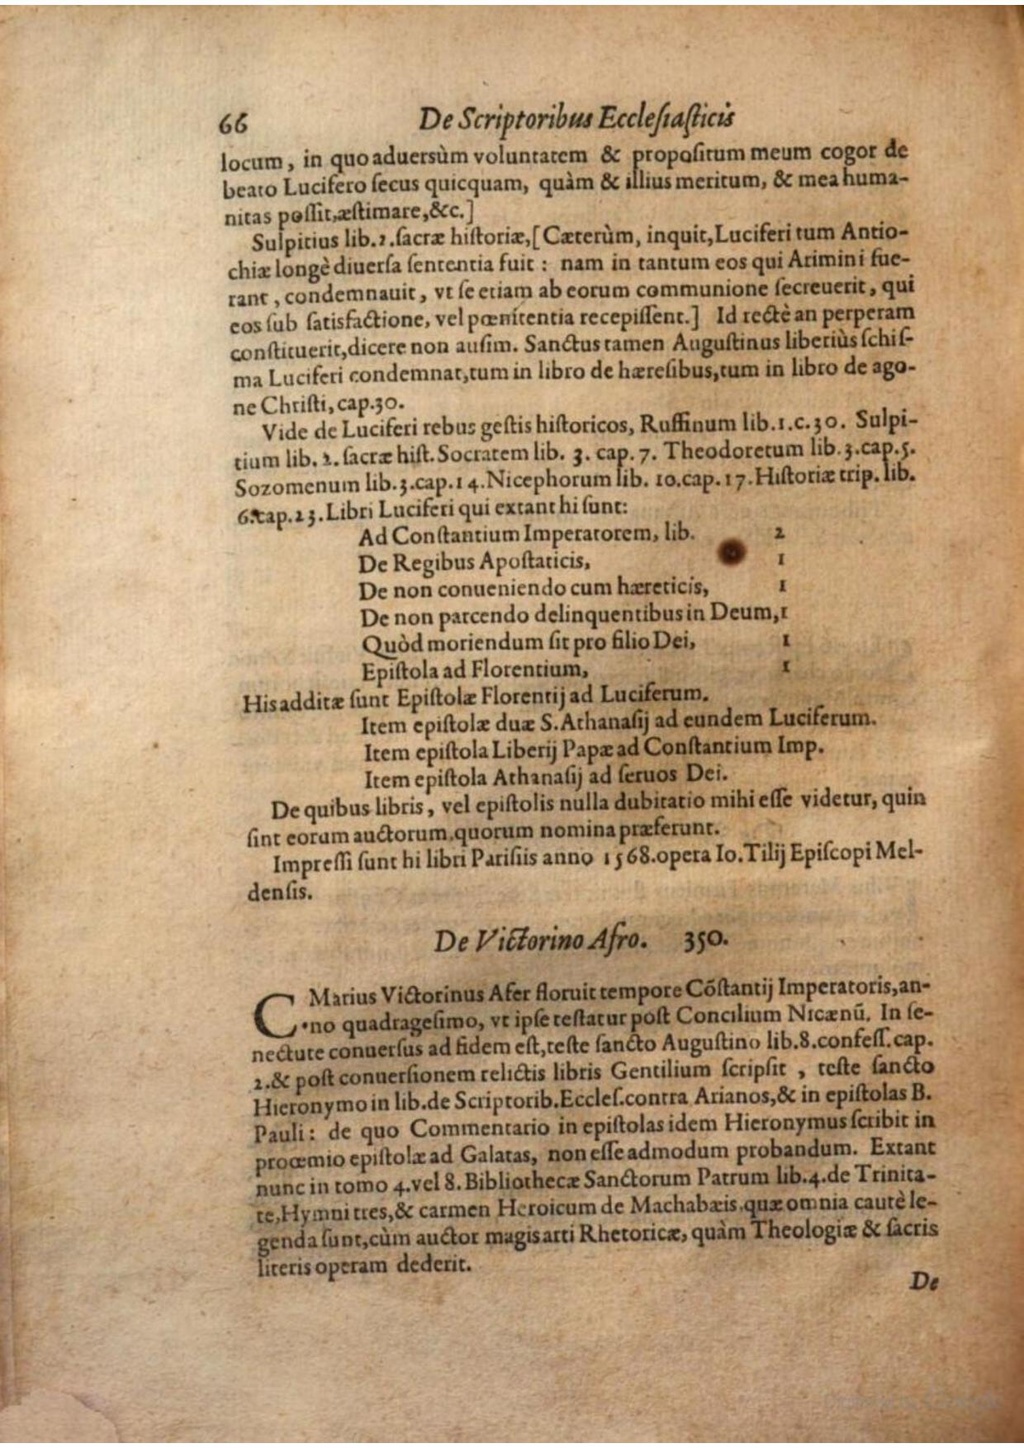 66 De Scriptoribus Ecclesiasticis
locum, in quo aduersùm voluntatem & propositum meum cogor de
beato Lucifero secus quicquam, quàm & illius meritum, & mea huma-
nitas possit, æstimare, &c.]
Sulpitius lib.2. sacræ historiæ, [Cæterùm, inquit, Luciferi tum Antio-
chiæ longè diuersa sententia fuit : nam in tantum eos qui Arimini fue-
rant, condemnauit, vt se etiam ab eorum communione secreuerit, qui
eos sub satisfactione, vel pœnitentia recepissent.] Id rectè an perperam
constituerit, dicere non ausim. Sanctus tamen Augustinus liberiùs schis-
ma Luciferi condemnat, tum in libro de hæresibus, tum in libro de ago-
ne Christi, cap.30.
Vide de Luciferi rebus gestis historicos, Ruffinum lib.1.c.30. Sulpi-
tium lib. 2. sacræ hist. Socratem lib. 3. cap. 7. Theodoretum lib.3.cap.5.
Sozomenum lib.3.cap.14. Nicephorum lib. 10.cap.17. Historiæ trip. lib.
6.cap.23. Libri Luciferi qui extant hi sunt:
Ad Constantium Imperatorem, lib. 2
De Regibus Apostaticis, 1
De non conueniendo cum hæreticis, 1
De non parcendo delinquentibus in Deum, 1
Quòd moriendum sit pro filio Dei, 1
Epistola ad Florentium, 1
His additæ sunt Epistolæ Florentij ad Luciferum.
Item epistolæ duæ S. Athanasij ad eundem Luciferum.
Item epistola Liberij Papæ ad Constantium Imp.
Item epistola Athanasij ad seruos Dei.
De quibus libris, vel epistolis nulla dubitatio mihi esse videtur, quin
sint eorum auctorum, quorum nomina præferunt.
Impressi sunt hi libri Parisiis anno 1568. opera Io. Tilij Episcopi Mel-
densis.
De Victorino Afro. 350.
C. Marius Victorinus Afer floruit tempore Cõstantij Imperatoris, an-
no quadragesimo, vt ipse testatur post Concilium Nicænũ. In se-
nectute conuersus ad fidem est, teste sancto Augustino lib.8.confess.cap.
2.& post conuersionem relictis libris Gentilium scripsit , teste sancto
Hieronymo in lib. de Scriptorib. Eccles. contra Arianos, & in epistolas B.
Pauli : de quo Commentario in epistolas idem Hieronymus scribit in
proœmio epistolæ ad Galatas, non esse admodum probandum. Extant
nunc in tomo 4. vel 8. Bibliothecæ Sanctorum Patrum lib.4. de Trinita-
te, Hymni tres, & carmen Heroicum de Machabæis. quæ omnia cautè le-
genda sunt, cùm auctor magis arti Rhetoricæ, quàm Theologiæ & sacris
literis operam dederit.
De